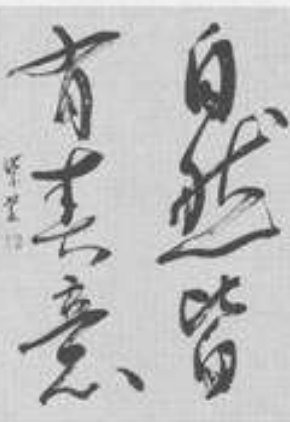 自然皆
有春意